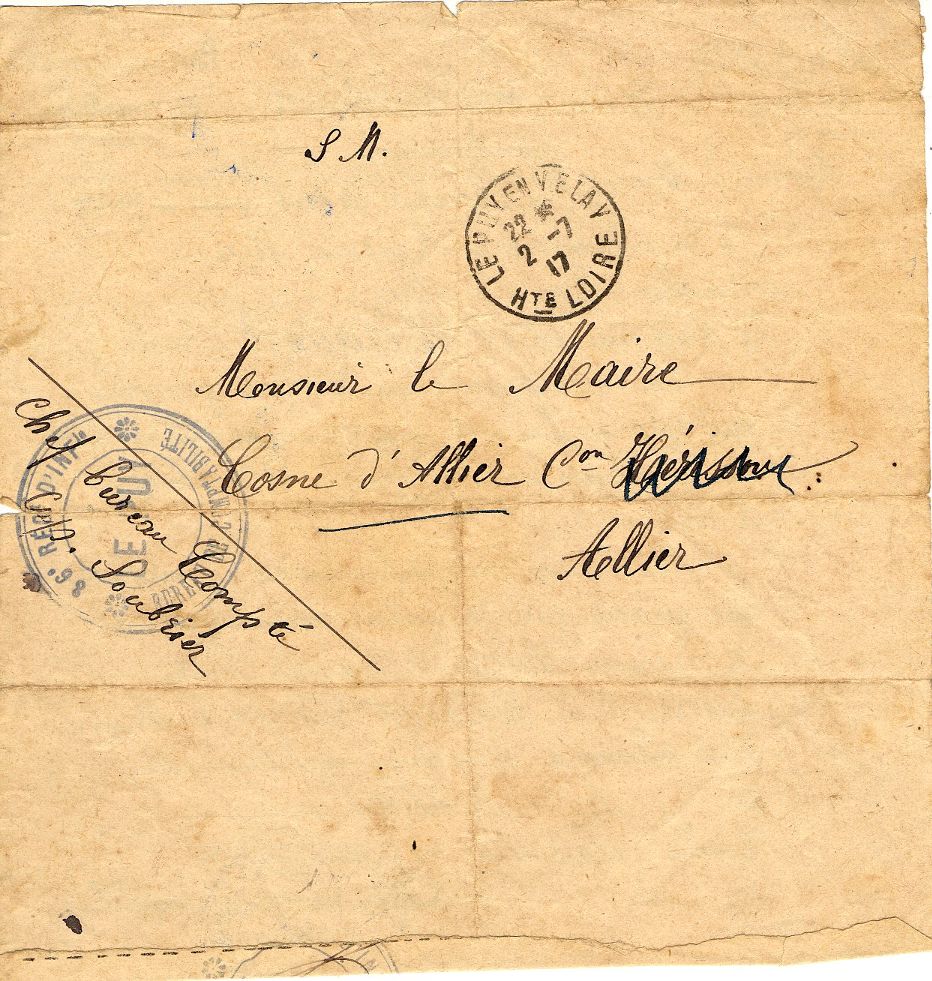 S M.
LE PUY EN VELAY
22 *
2 -7
17
HTE LOIRE
Monsieur le Maire
Cosne d'Allier Con Hérisson
Allier
86e RÉGT D'INFIE
BUREAU COMPTABILITÉ
DÉPOT
Chef bureau Compté
Soubrier